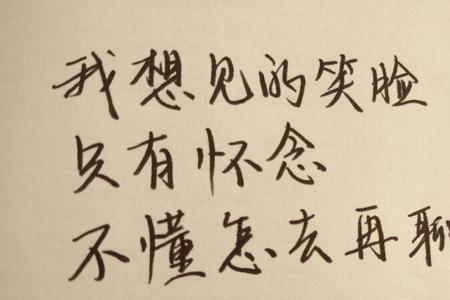 我想见的笑脸
只有怀念
不懂怎去再聊